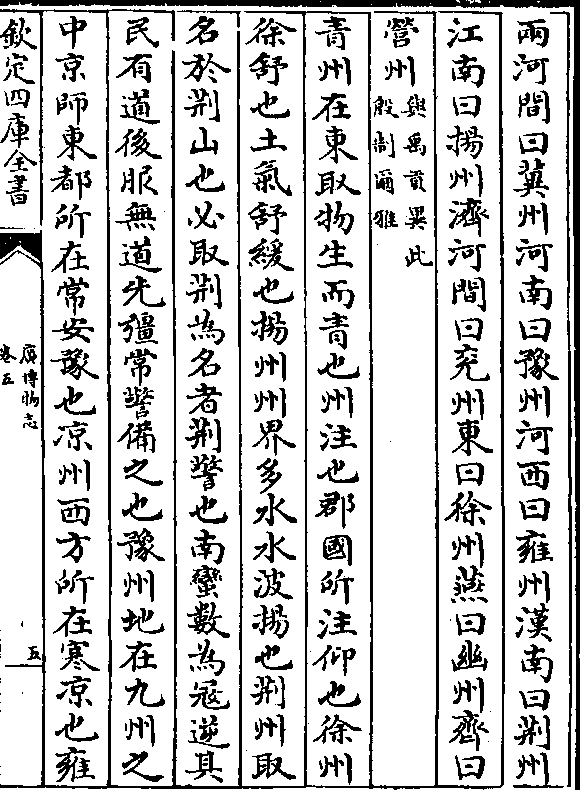 兩河間曰冀州河南曰豫州河西曰雍州漢南曰荆州
江南曰揚州濟河間曰兖州東曰徐州燕曰幽州齊曰
營州與禹貢異此殷制爾雅
青州在東取物生而青也州注也郡國所注仰也徐州
徐舒也土氣舒緩也揚州州界多水水波揚也荆州取
名於荆山也必取荆為名者荆警也南蠻數為冦逆其
民有道後服無道先彊常警備之也豫州地在九州之
中京師東都所在常安豫也凉州西方所在寒凉也雍
欽定四庫全書
廣博物志
卷五
五